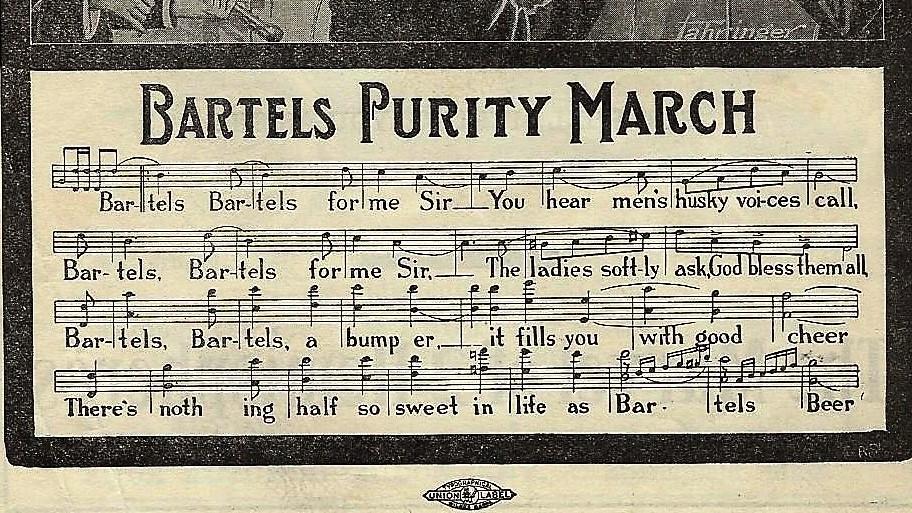 Fahringer
BARTELS PURITY MARCH
Bar-tels Bar-tels for me Sir You hear men's husky voi-ces call,
Bar-tels, Bar-tels for me Sir, The ladies soft-ly ask, God bless them all,
Bar-tels, Bar-tels, a bump er, it fills you with good cheer
There's noth ing half so sweet in life as Bar- tels Beer
UNION LABEL